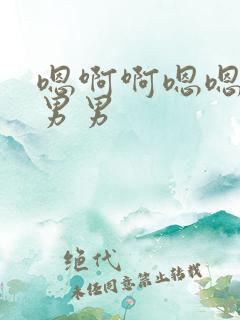 嗯啊啊嗯嗯
男男
绝代
未经同意禁止转载